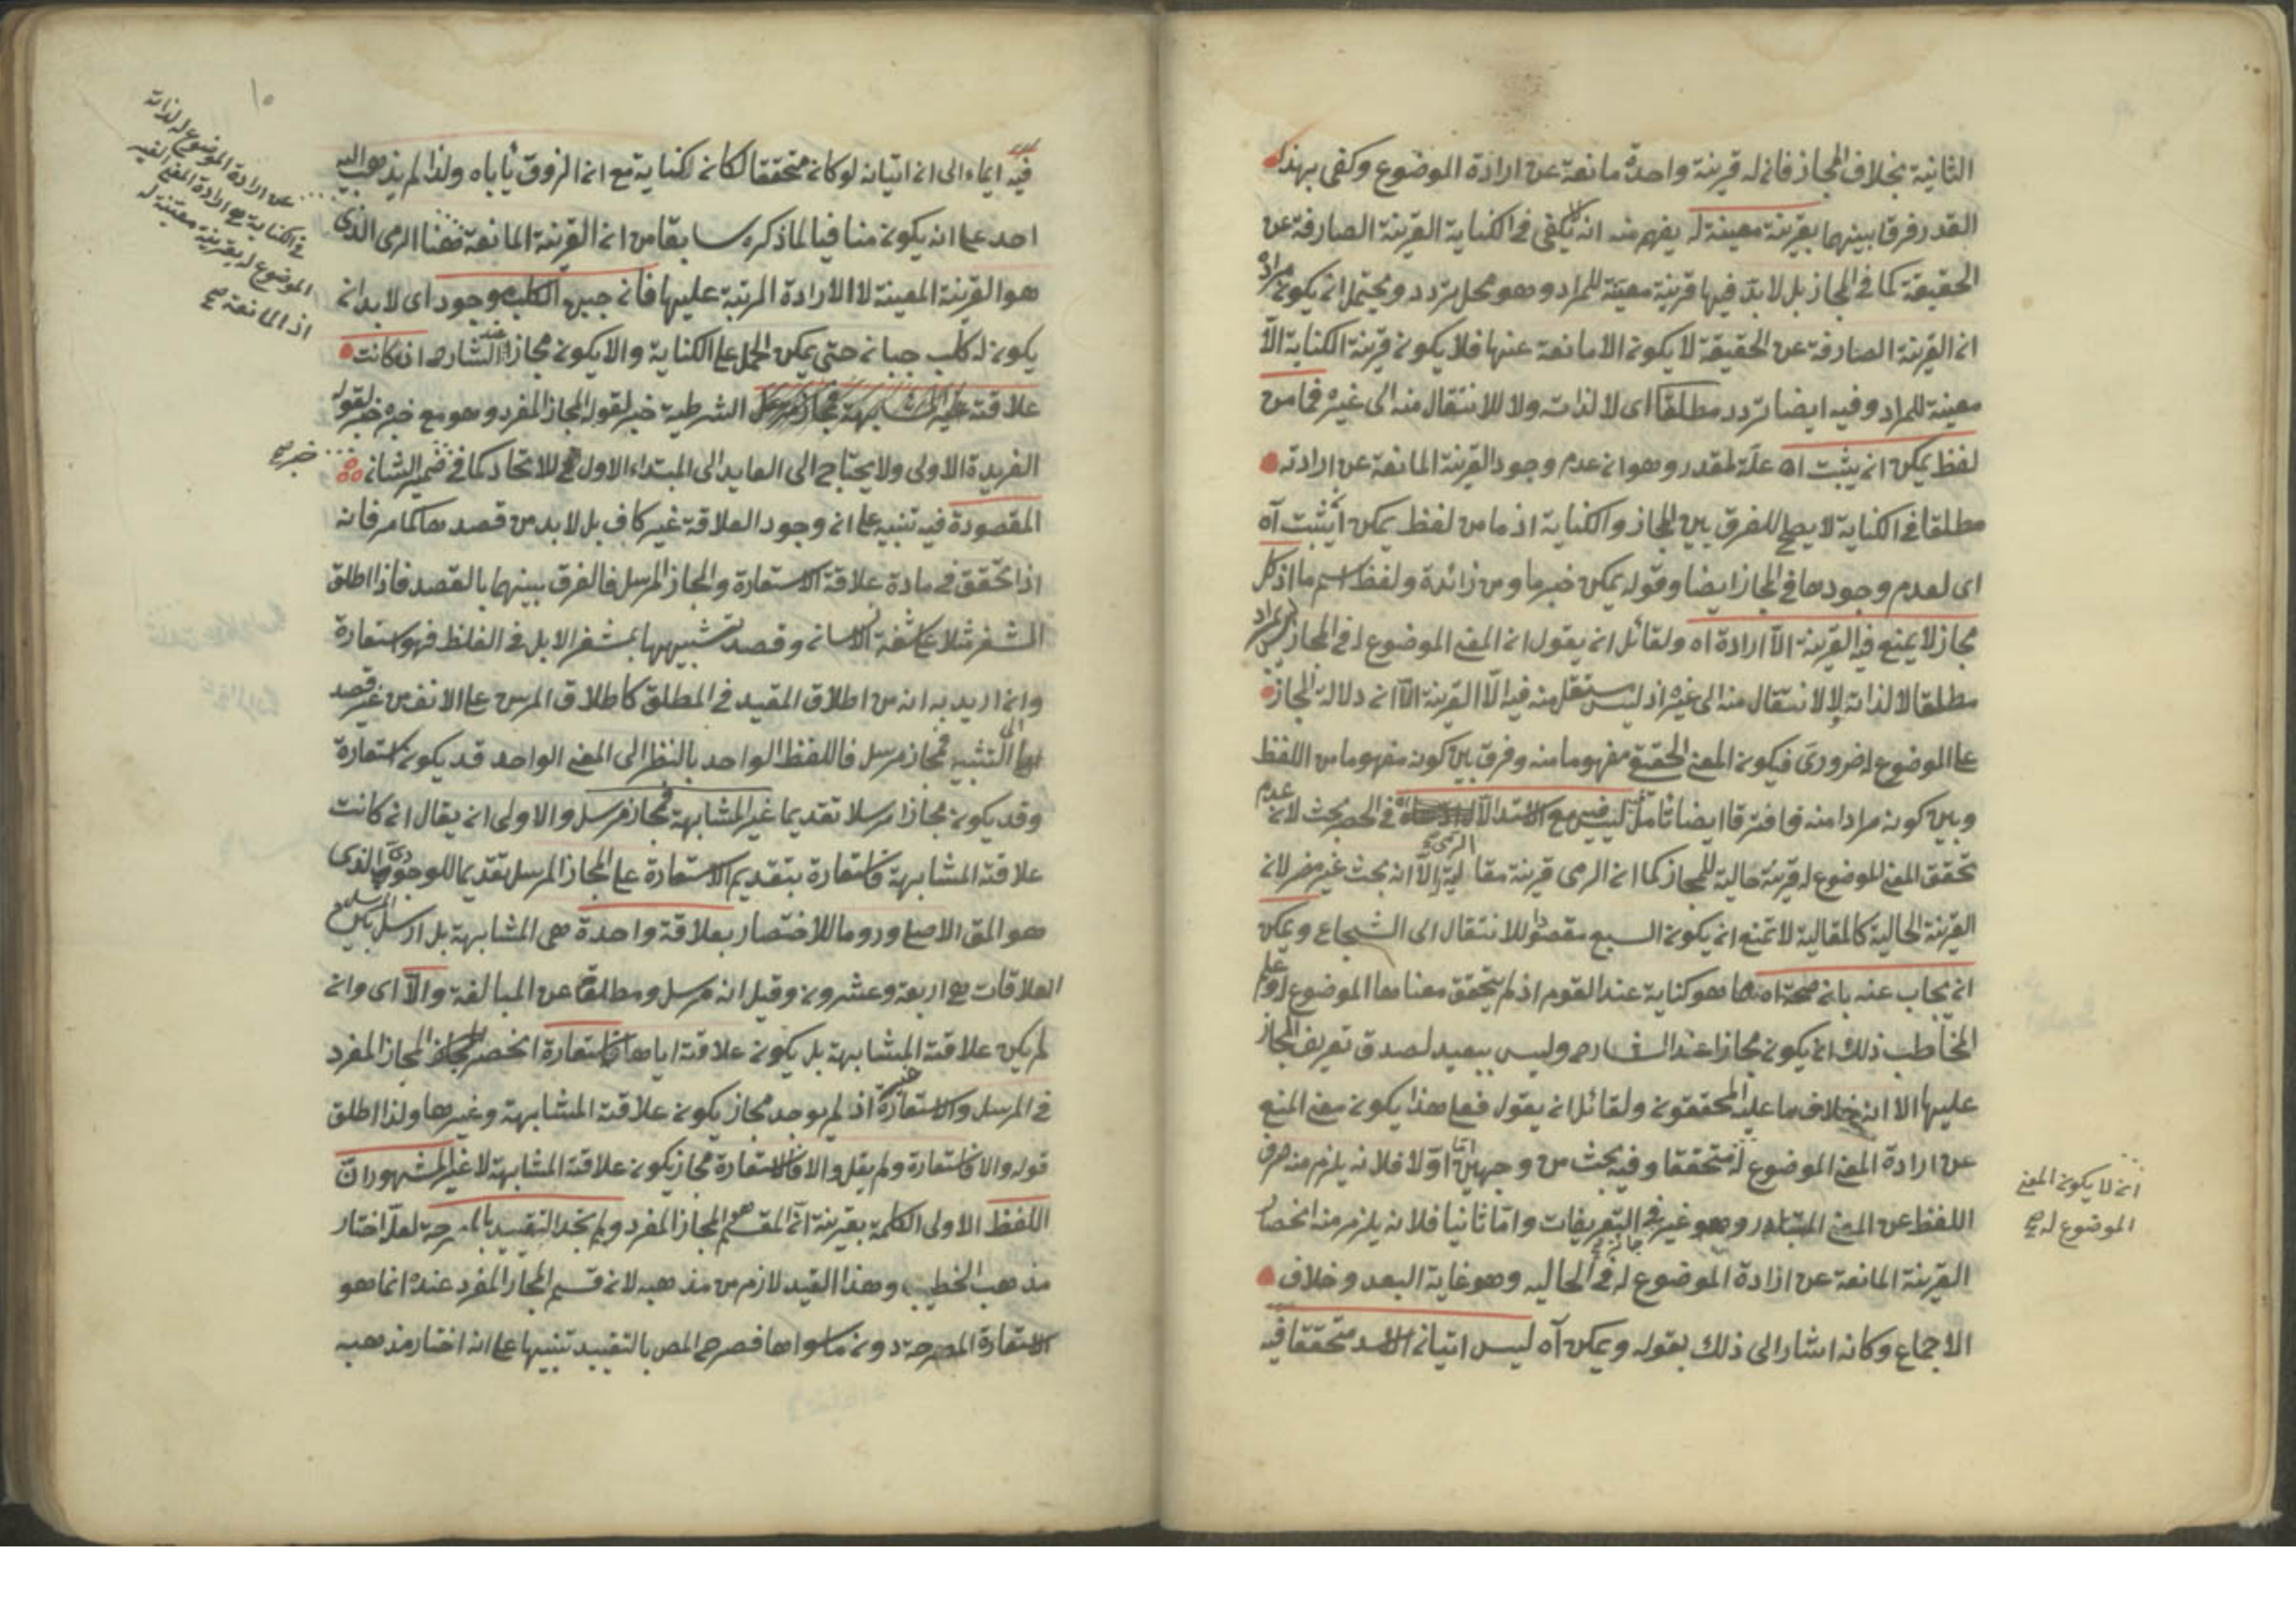 الثانية بخلاف المجاز فانه له قرينة واحدة مانعة عن ارادة الموضوع وكفى بهذا
القدر فرقا بينهما بقرينة معينة له يفهم منه انه لا يكفى فى الكناية القرينة الصارفة عن
الحقيقة كما فى المجاز بل لا بد فيها قرينة معينة للمراد وهو محل تردد ويحتمل ان يكون مراده
ان القرينة الصارفة عن الحقيقة لا يكون الا مانعة عنها فلا يكون قرينة الكناية الا
معينة للمراد وفيه ايضا تردد مطلقا اى لا لذاته ولا للانتقال منه الى غيره فما من
لفظ يمكن ان يثبت اه علة لمقدر وهو ان عدم وجود القرينة المانعة عن ارادته
مطلقا فى الكناية لا يصح للفرق بين المجاز والكناية اذ ما من لفظ يمكن ان يثبت آه
اى لعدم وجودها فى المجاز ايضا وقوله يمكن خبر ما ومن زائدة ولفظ اسم ما اذ كل
مجاز لا يمنع فيه القرينة الا ارادة اه ولقائل ان يقول ان المعنى الموضوع له فى المجاز ليس بمراد
مطلقا لا لذاته ولا للانتقال منه الى غيره اذ ليس ينتقل منه فيه الا القرينة الا ان دلالة المجاز
على الموضوع له ضرورى فيكون المعنى الحقيقى مفهوما منه وفرق بين كونه مفهوما من اللفظ
وبين كونه مرادا منه فافترقا ايضا تأمل ليس مع الاسد الا فى الحصر بحث لان عدم
تحقق المعنى الموضوع له قرينة حالية للمجاز كما ان الرمى قرينة مقالية الا انه بحث غير مضر لان
القرينة الحالية كالمقالية لا تمنع ان يكون السبع مقصودا للانتقال الى الشجاع ويمكن
ان يجاب عنه بان صحة اه هذا هو كناية عند القوم اذ لم يتحقق معناها الموضوع له وعلم
المخاطب ذلك ان يكون مجازا عند الشارح وليس ببعيد لصدق تعريف المجاز
عليها الا انه خلاف ما عليه المحققون ولقائل ان يقول فعلى هذا يكون معنى المنع
عن ارادة المعنى الموضوع له متحققا وفيه بحث من وجهين اما اولا فلانه يلزم منه صرف
اللفظ عن المعنى المتبادر وهو غير جائز فى التعريفات واما ثانيا فلانه يلزم منه انحصار
القرينة المانعة عن ارادة الموضوع له فى الحاليه وهو غاية البعد وخلاف
الاجماع وكانه اشار الى ذلك بقوله ويمكن آه ليس اتيان الاسد متحققا فيه
ان لا يكون المعنى
الموضوع له صح
١٠
فيه ايماء الى ان اتيانه لو كان متحققا لكان كناية مع ان الذوق يأباه ولذا لم يذهب اليه
احد على انه يكون منافيا لما ذكره سابقا من ان القرينة المانعة هنا الرمى الذى
هو القرينة المعينة لا الارادة المرتبة عليها فانه جبن الكلب موجود اى لا بد ان
يكون له كلب جبان حتى يمكن الحمل على الكناية والا يكون مجازا عند الشارح ان كانت
علاقته الشرطية خبر لقوله المجاز المفرد وهو مع خبره خبر لقوله
الفريدة الاولى ولا يحتاج الى العايد الى المبتداء الاول للاتحاد كما فى ضمير الشان
المقصودة فيه تنبيه على ان وجود العلاقة غير كاف بل لا بد من قصدها كما مر فانه
اذا تحقق فى مادة علاقة الاستعارة والمجاز المرسل فالفرق بينهما بالقصد فاذا اطلق
المشفر مثلا على شفة الانسان وقصد تشبيهها بمشفر الابل فى الغلظ فهو استعارة
وان اريد به انه من اطلاق المقيد فى المطلق كاطلاق المرسن على الانف من غير قصد
الى التشبيه فمجاز مرسل فاللفظ الواحد بالنظر الى المعنى الواحد قد يكون استعارة
وقد يكون مجازا مرسلا تقديما غير المشابهة فمجاز مرسل والاولى ان يقال ان كانت
علاقته المشابهة فاستعارة بتقديم الاستعارة على المجاز المرسل تقديما للوجودى الذى
هو المق الاصلى وروما للاختصار بعلاقة واحدة هى المشابهة بل ارسل بين
العلاقات هى اربعة وعشرون وقيل انه مرسل ومطلق عن المبالغة والا اى وان
لم يكن علاقته غير المشابهة بل يكون علاقته اياها فاستعارة انحصر المجاز المفرد
فى المرسل والاستعارة اذ لم يوجد مجاز يكون علاقته المشابهة وغيرها ولذا اطلق
قوله والا فاستعارة ولم يقل والا فالاستعارة مجاز يكون علاقته المشابهة لا غير المشهور ان
اللفظ الاولى الكلمة بقرينة ان المقسم هو المجاز المفرد ولم يجد التقييد بالمصرحة لعله اختار
مذهب الخطيب وهذا القيد لازم من مذهبه لان قسيم المجاز المفرد عنده انما هو
الاستعارة المصرحة دون ما سواها فصرح المص بالتقييد تنبيها على انه اختار مذهبه
عن الارادة الموضوع له لذاته
فى الكناية هى ارادة المعنى الغير
الموضوع له بقرينة معينة له
اذ المانعة صح
خبر صح